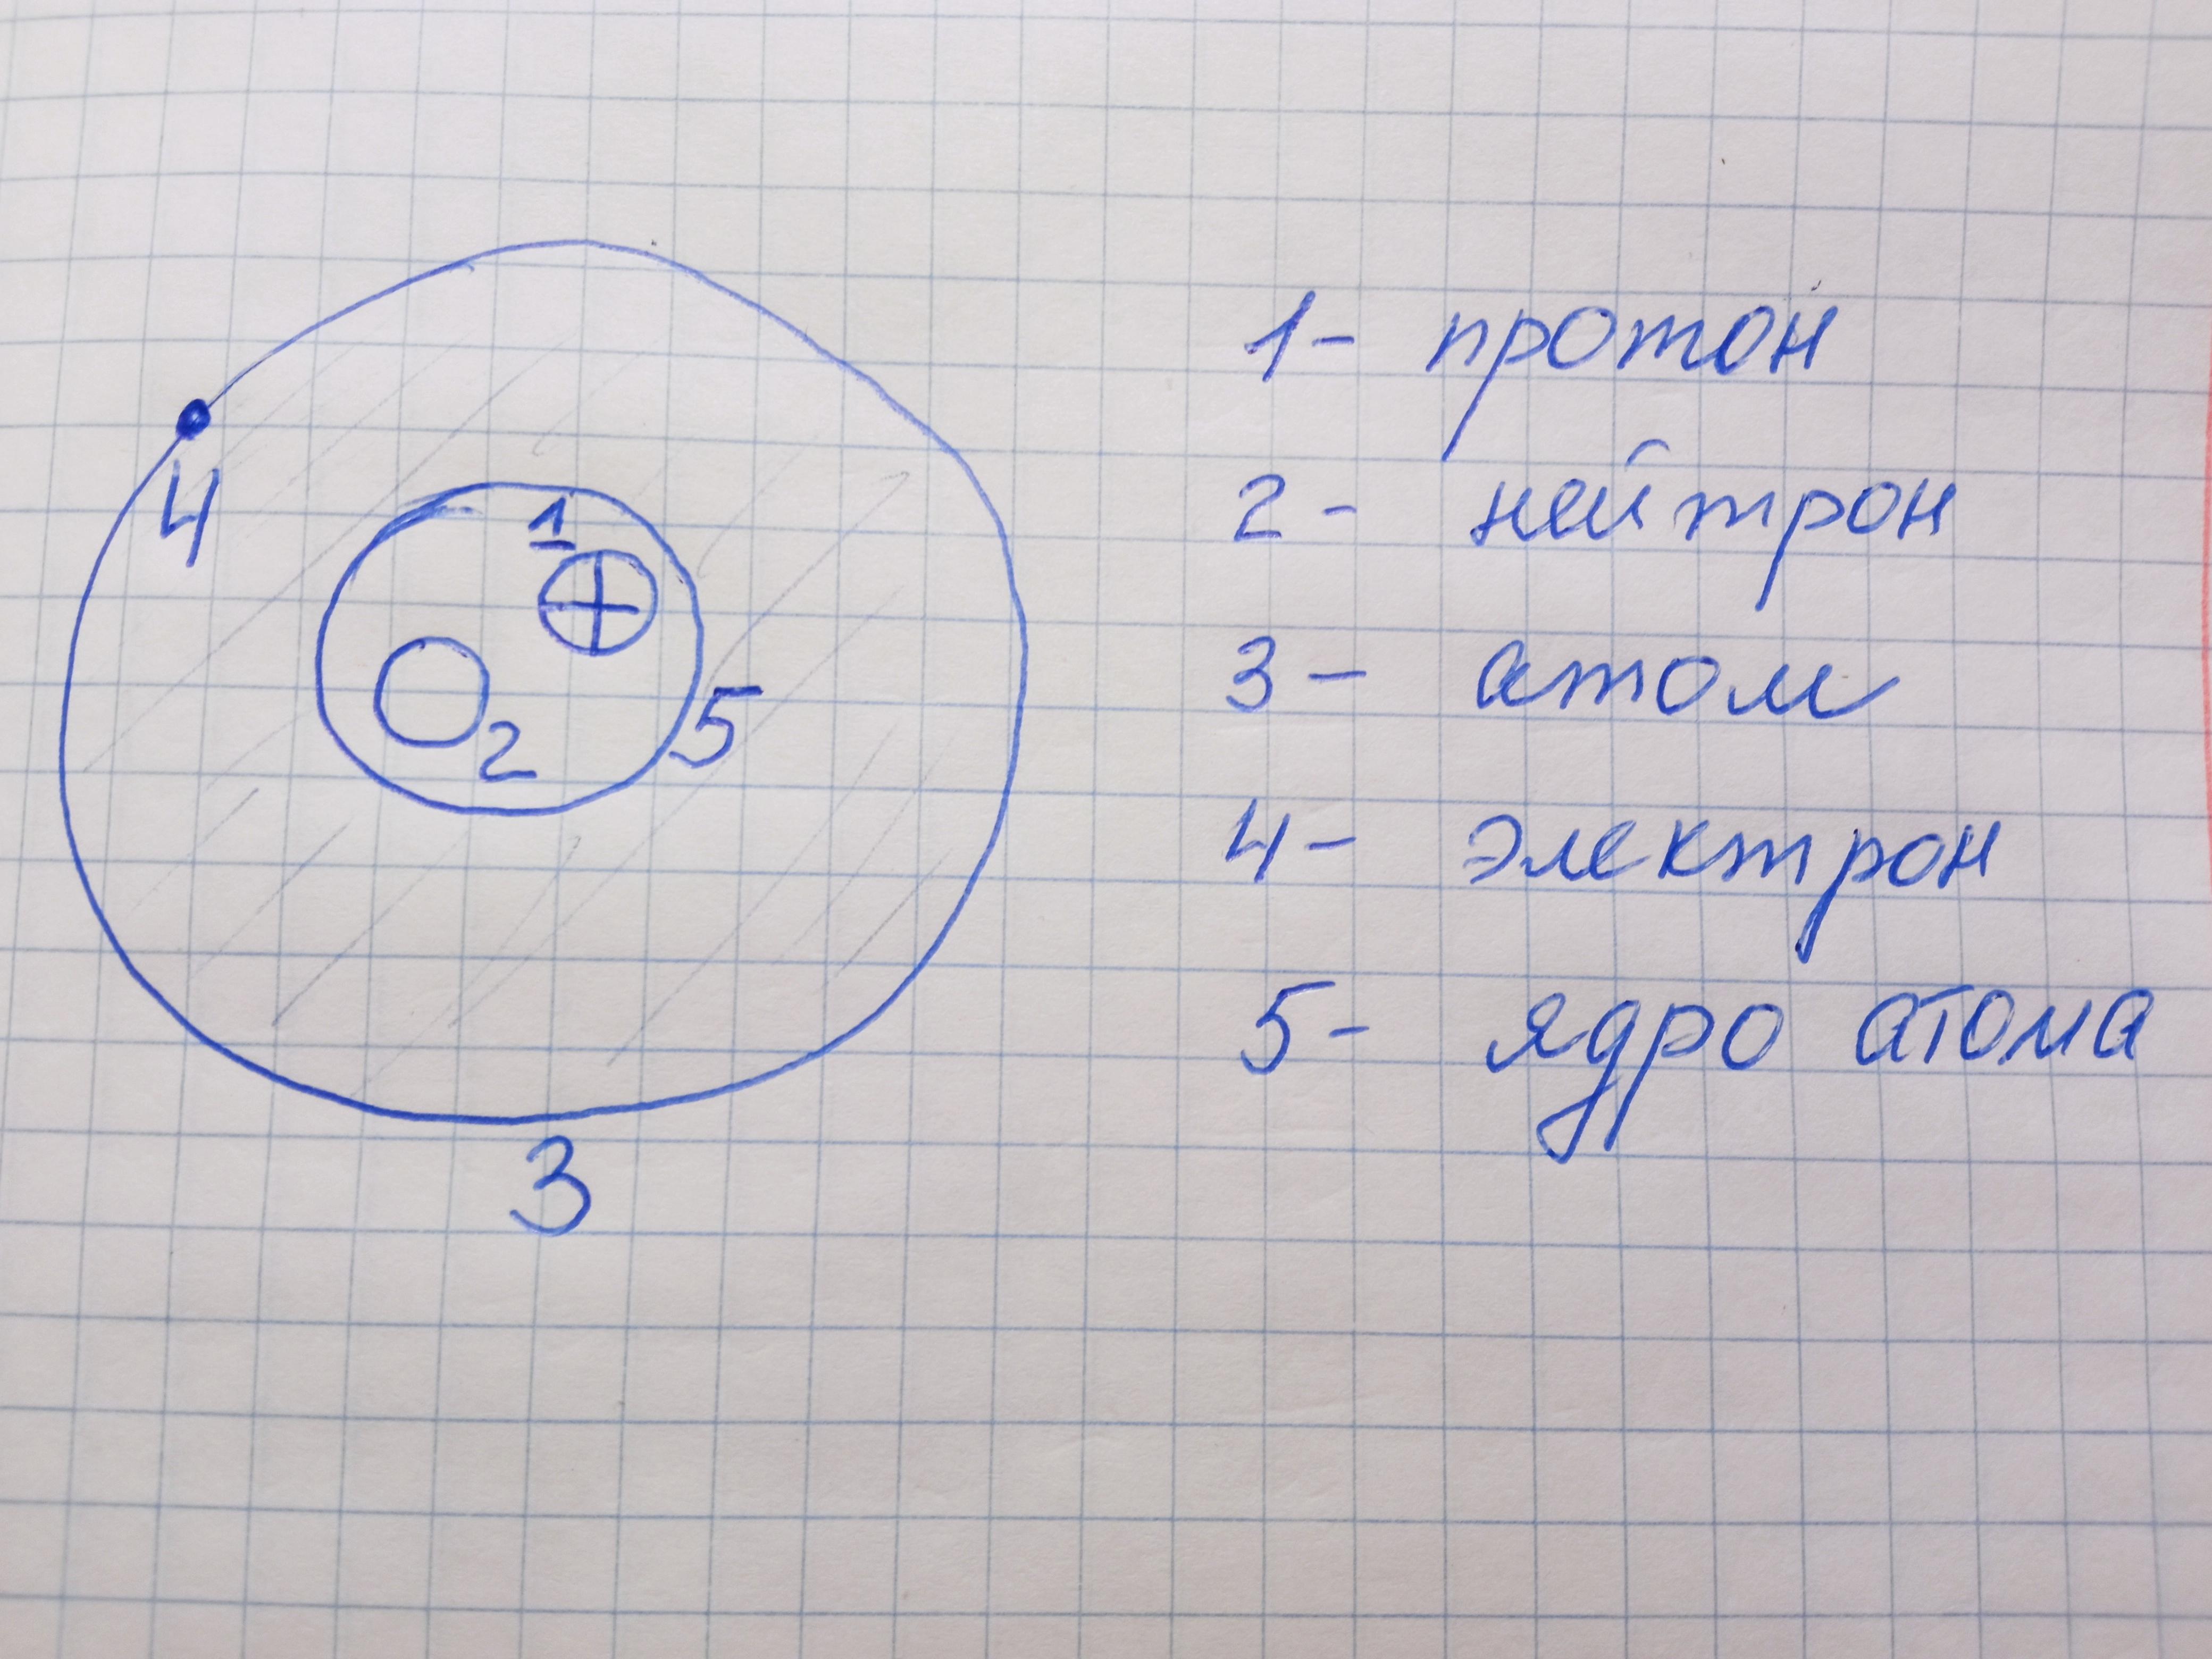 4
1
2
5
3
1- протон
2- нейтрон
3- атом
4- электрон
5- ядро атома